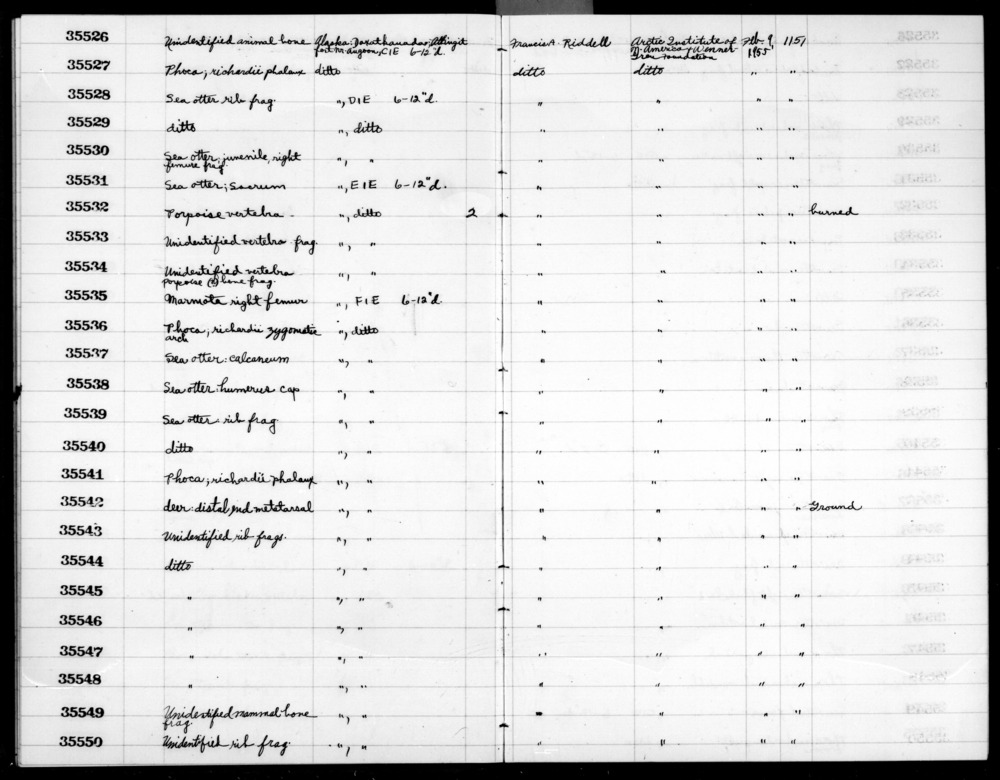 35526 Unidentified animal bone Alaska: Daxatkanada; Tlingit Francis A. Riddell Arctic Institute of Feb. 9, 1151
fort nr. Angoon, C1E 6-12"d. N. America & Wenner- 1955
Gren Foundation
35527 Phoca; richardii phalanx ditto ditto ditto " "
35528 Sea otter rib frag. ", D1E 6-12"d. " " " "
35529 ditto ", ditto " " " "
35530 Sea otter; juvenile, right ", " " " " "
femure frag.
35531 Sea otter; Sacrum ", E1E 6-12"d. " " " "
35532 Porpoise vertebra. ", ditto 2 " " " " burned
35533 Unidentified vertebra frag. ", " " " " "
35534 Unidentified vertebra ", " " " " "
porpoise (?) bone frag.
35535 Marmota right femur ", F1E 6-12"d. " " " "
35536 Phoca; richardii zygomatic ", ditto " " " "
arch
35537 Sea otter: calcaneum ", " " " " "
35538 Sea otter: humerus cap ", " " " " "
35539 Sea otter: rib frag. ", " " " " "
35540 ditto ", " " " " "
35541 Phoca; richardii phalanx ", " " " " "
35542 deer: distal end metatarsal ", " " " " " Ground
35543 Unidentified rib frags. ", " " " " "
35544 ditto ", " " " " "
35545 " ", " " " " "
35546 " ", " " " " "
35547 " ", " " " " "
35548 " ", " " " " "
35549 Unidentified mammal bone ", " " " " "
frag.
35550 Unidentified rib frag. ", " " " " "